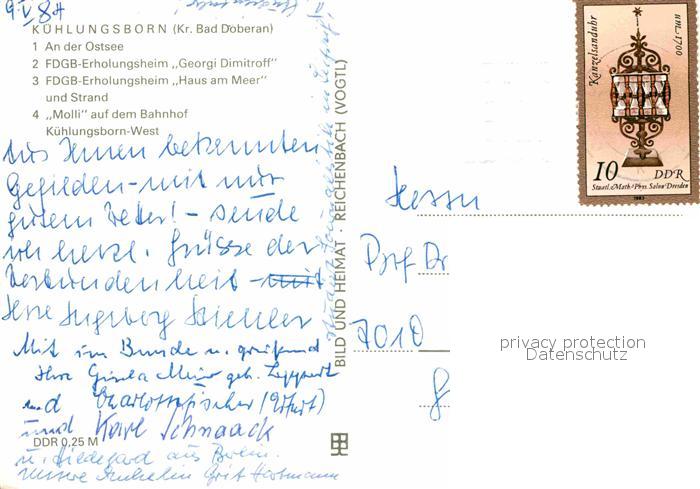 9.V.84
KÜHLUNGSBORN (Kr. Bad Doberan)
1 An der Ostsee
2 FDGB-Erholungsheim „Georgi Dimitroff"
3 FDGB-Erholungsheim „Haus am Meer"
und Strand
4 „Molli" auf dem Bahnhof
Kühlungsborn-West
Aus Ihnen bekannten
Gefilden - mit nur
gutem Wetter! - sende
ich herzl. Grüsse der
Verbundenheit
Ihre Ingeborg
Mit im Bunde u. grüßend
Ihre Gisela Meier geb. Leppert
und Charlotte Fischer (Erfurt)
und Karl Schnaack
DDR 0,25 M
u. Hildegard aus Berlin.
unsere Grit Hartmann
BILD UND HEIMAT · REICHENBACH (VOGTL)
Kanzelsanduhr
um 1700
10 DDR
Staatl. Math.-Phys. Salon Dresden
1983
Herrn
Prof. Dr
7010
privacy protection
Datenschutz